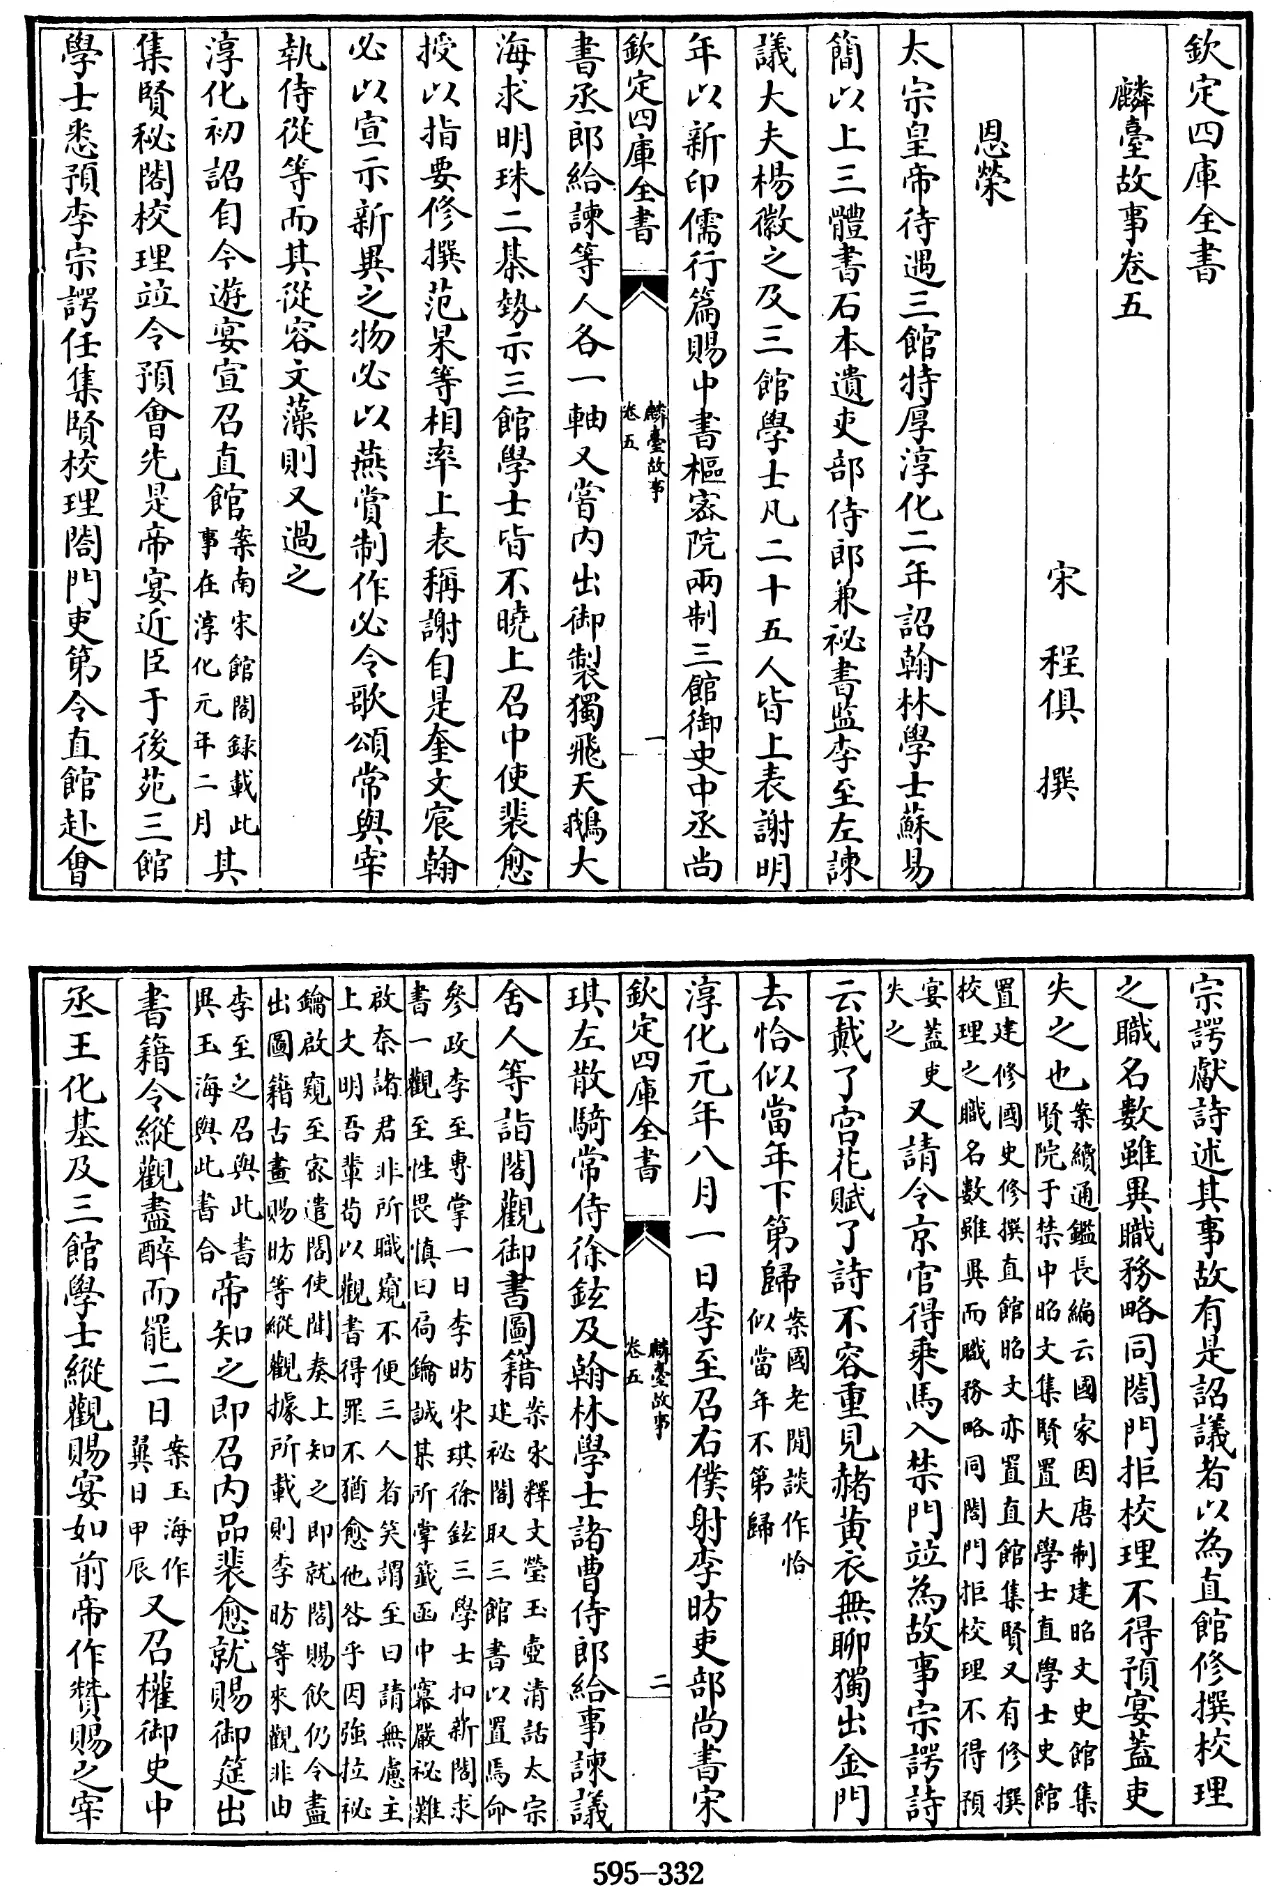 欽定四庫全書
麟臺故事卷五
宋 程俱 撰
恩榮
太宗皇帝待遇三館特厚淳化二年詔翰林學士蘇易
簡以上三體書石本遺吏部侍郎兼祕書監李至左諫
議大夫楊徽之及三館學士凡二十五人皆上表謝明
年以新印儒行篇賜中書樞宻院兩制三館御史中丞尚
欽定四庫全書
麟臺故事
卷五
一
書丞郎給諫等人各一軸又嘗内出御製獨飛天鵝大
海求明珠二棊勢示三館學士皆不曉上召中使裴愈
授以指要修撰范杲等相率上表稱謝自是奎文宸翰
必以宣示新異之物必以燕賞制作必令歌頌常與宰
執侍從等而其從容文藻則又過之
淳化初詔自今遊宴宣召直館案南宋館閣録載此
事在淳化元年二月其
集賢秘閣校理竝令預會先是帝宴近臣于後苑三館
學士悉預李宗諤任集賢校理閤門吏第令直館赴會
宗諤獻詩述其事故有是詔議者以為直館修撰校理
之職名數雖異職務略同閤門拒校理不得預宴蓋吏
失之也案續通鑑長編云國家因唐制建昭文史館集
賢院于禁中昭文集賢置大學士直學士史館
置建修國史修撰直館昭文亦置直館集賢又有修撰
校理之職名數雖異而職務略同閤門拒校理不得預
宴蓋吏
失之又請令京官得乗馬入禁門竝為故事宗諤詩
云戴了宫花賦了詩不容重見赭黄衣無聊獨出金門
去恰似當年下第歸案國老閒談作恰
似當年不第歸
淳化元年八月一日李至召右僕射李昉吏部尚書宋
欽定四庫全書
麟臺故事
卷五
二
琪左散騎常侍徐鉉及翰林學士諸曹侍郎給事諫議
舍人等詣閣觀御書圖籍案宋釋文瑩玉壺清話太宗
建祕閣取三館書以置焉命
參政李至專掌一日李昉宋琪徐鉉三學士扣新閣求
書一觀至性畏慎曰扃鑰誠某所掌籤函中羃嚴祕難
啟奈諸君非所職窺不便三人者笑謂至曰請無慮主
上文明吾輩茍以觀書得罪不猶愈他咎乎因強拉祕
鑰啟窺至宻遣閣使聞奏上知之即就閣賜飲仍令盡
出圖籍古畫賜昉等縱觀據所載則李昉等來觀非由
李至之召與此書
異玉海與此書合帝知之即召内品裴愈就賜御筵出
書籍令縱觀盡醉而罷二日案玉海作
翼日甲辰又召權御史中
丞王化基及三館學士縱觀賜宴如前帝作贊賜之宰
595-332